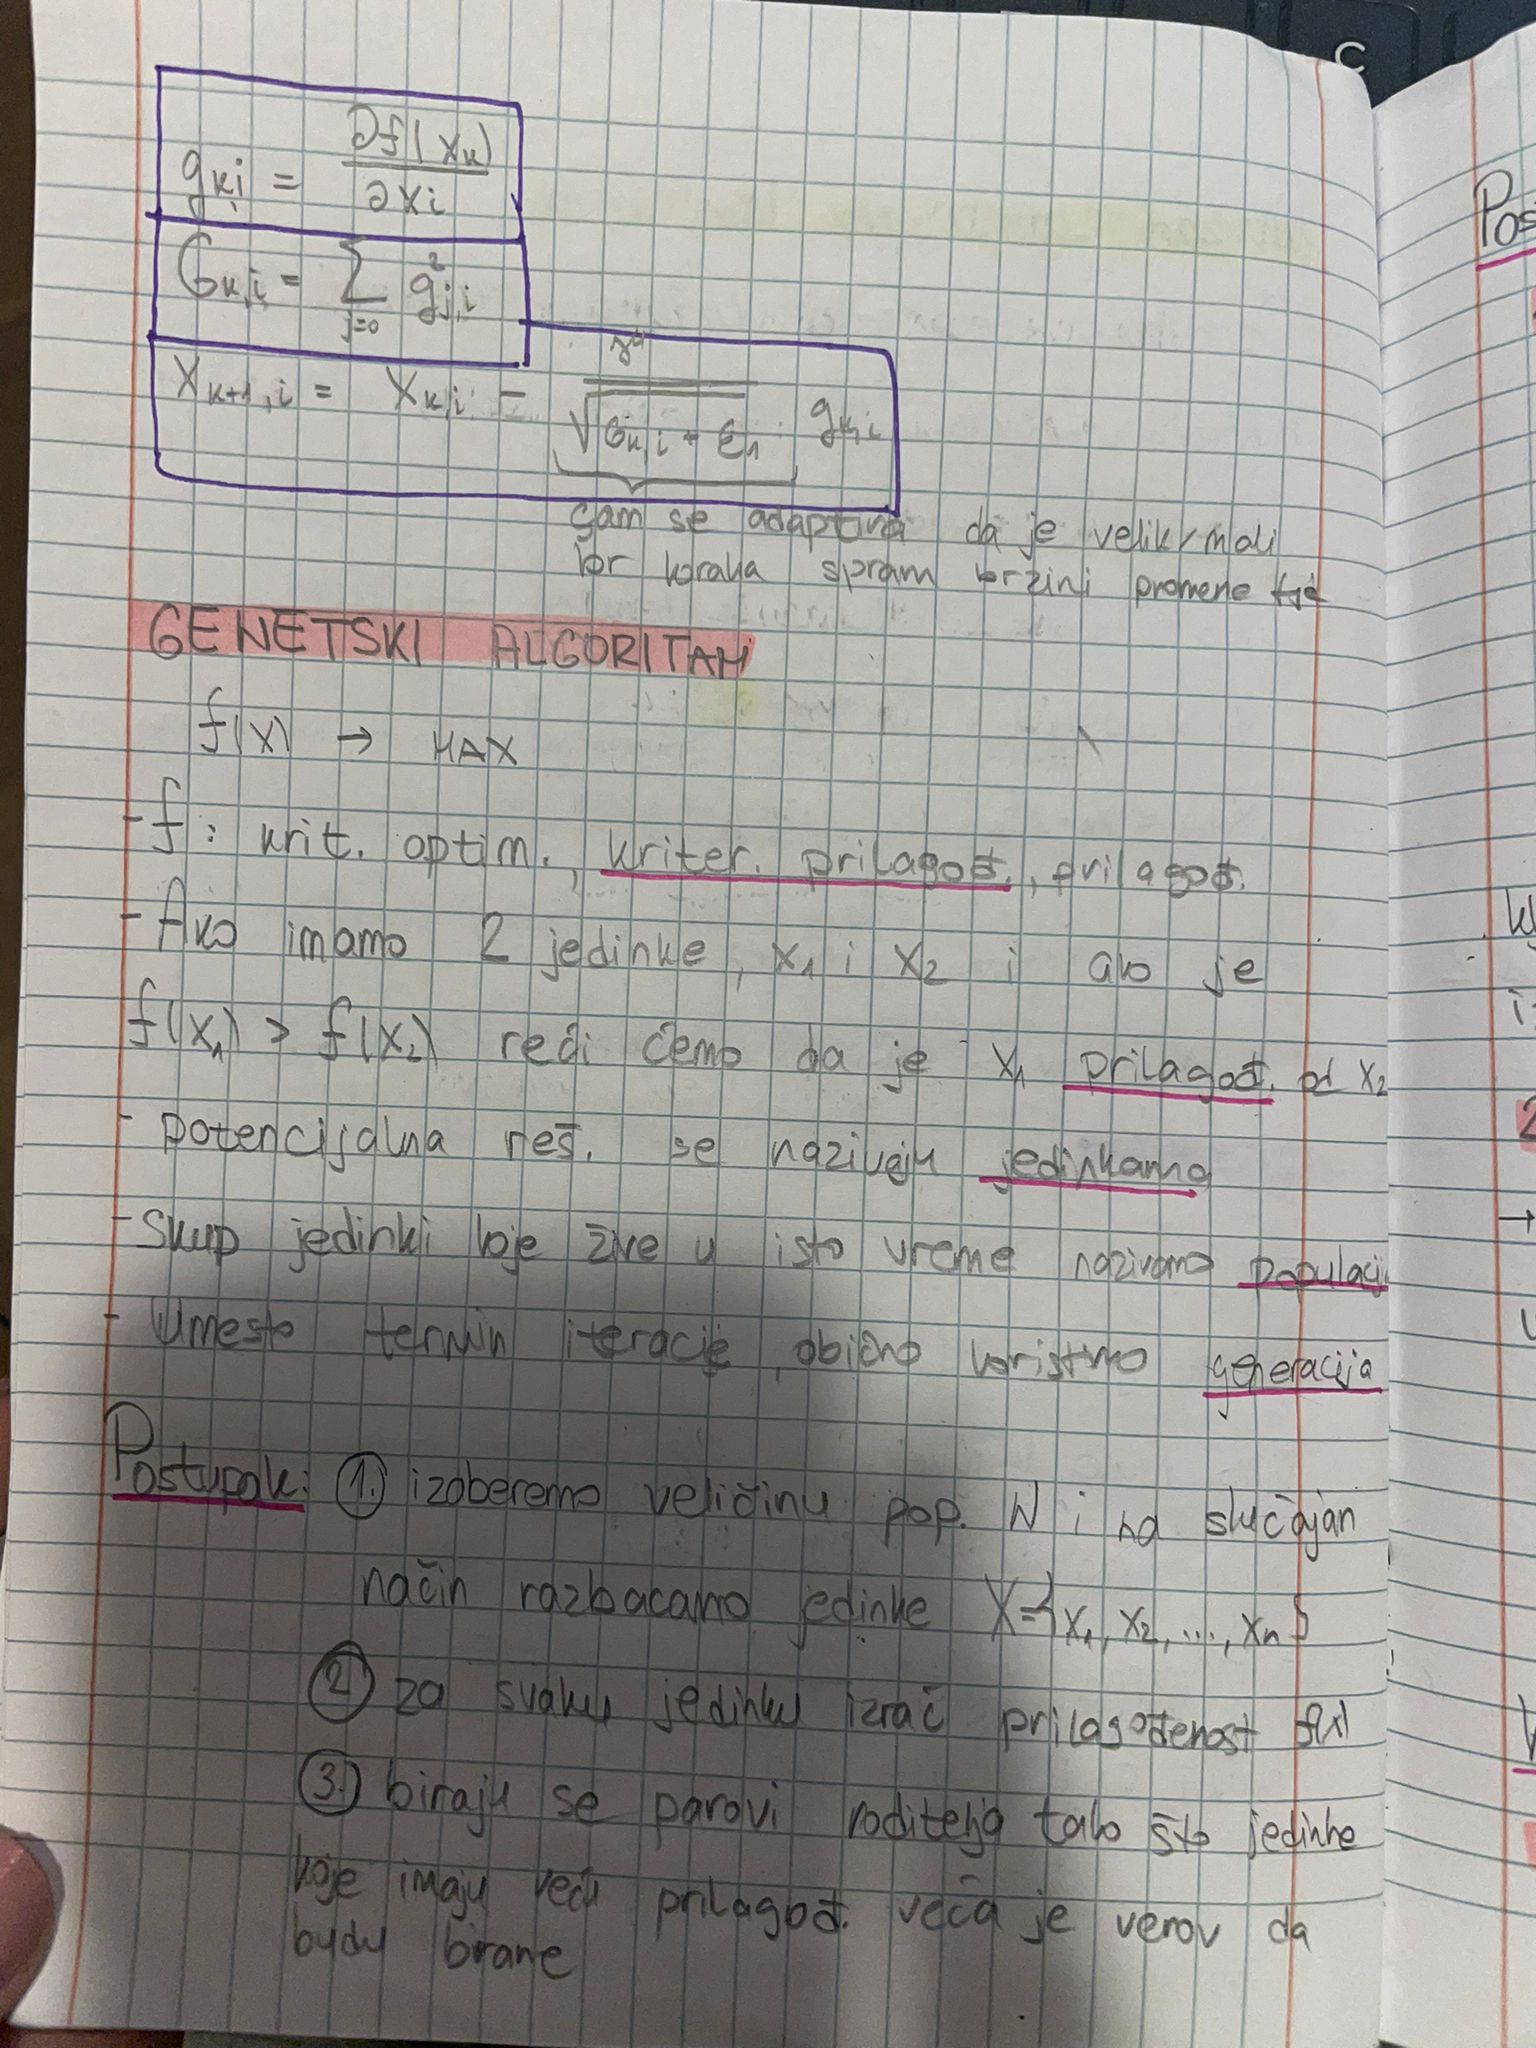 g_{ki} = ∂f(x_k) / ∂x_i
G_{k,i} = ∑_{j=0} g²_{j,i}
X_{k+1,i} = X_{k,i} - γ / √(G_{k,i} + ε_1) g_{k,i}
sam se adaptira da je velik/mali
br koraka spram brzini promene fje
GENETSKI ALGORITAM
f(x) → MAX
- f: krit. optim., kriter. prilagođ., prilagođ.
- Ako imamo 2 jedinke, x₁ i x₂ i ako je
f(x₁) > f(x₂) reći ćemo da je x₁ prilagođ. od x₂
- potencijalna reš. se nazivaju jedinkama
- skup jedinki koje žive u isto vreme nazivamo populacij
- umesto termin iteracije, obično koristimo generacija
Postupak: 1. izaberemo veličinu pop. N i na slučajan
način razbacamo jedinke X={x₁, x₂, ..., xn}
2 za svaku jedinku izrač prilagođenost f(x)
3. biraju se parovi roditelja tako što jedinke
koje imaju veću prilagođ. veća je verov da
budu birane
C
Pos
2
→